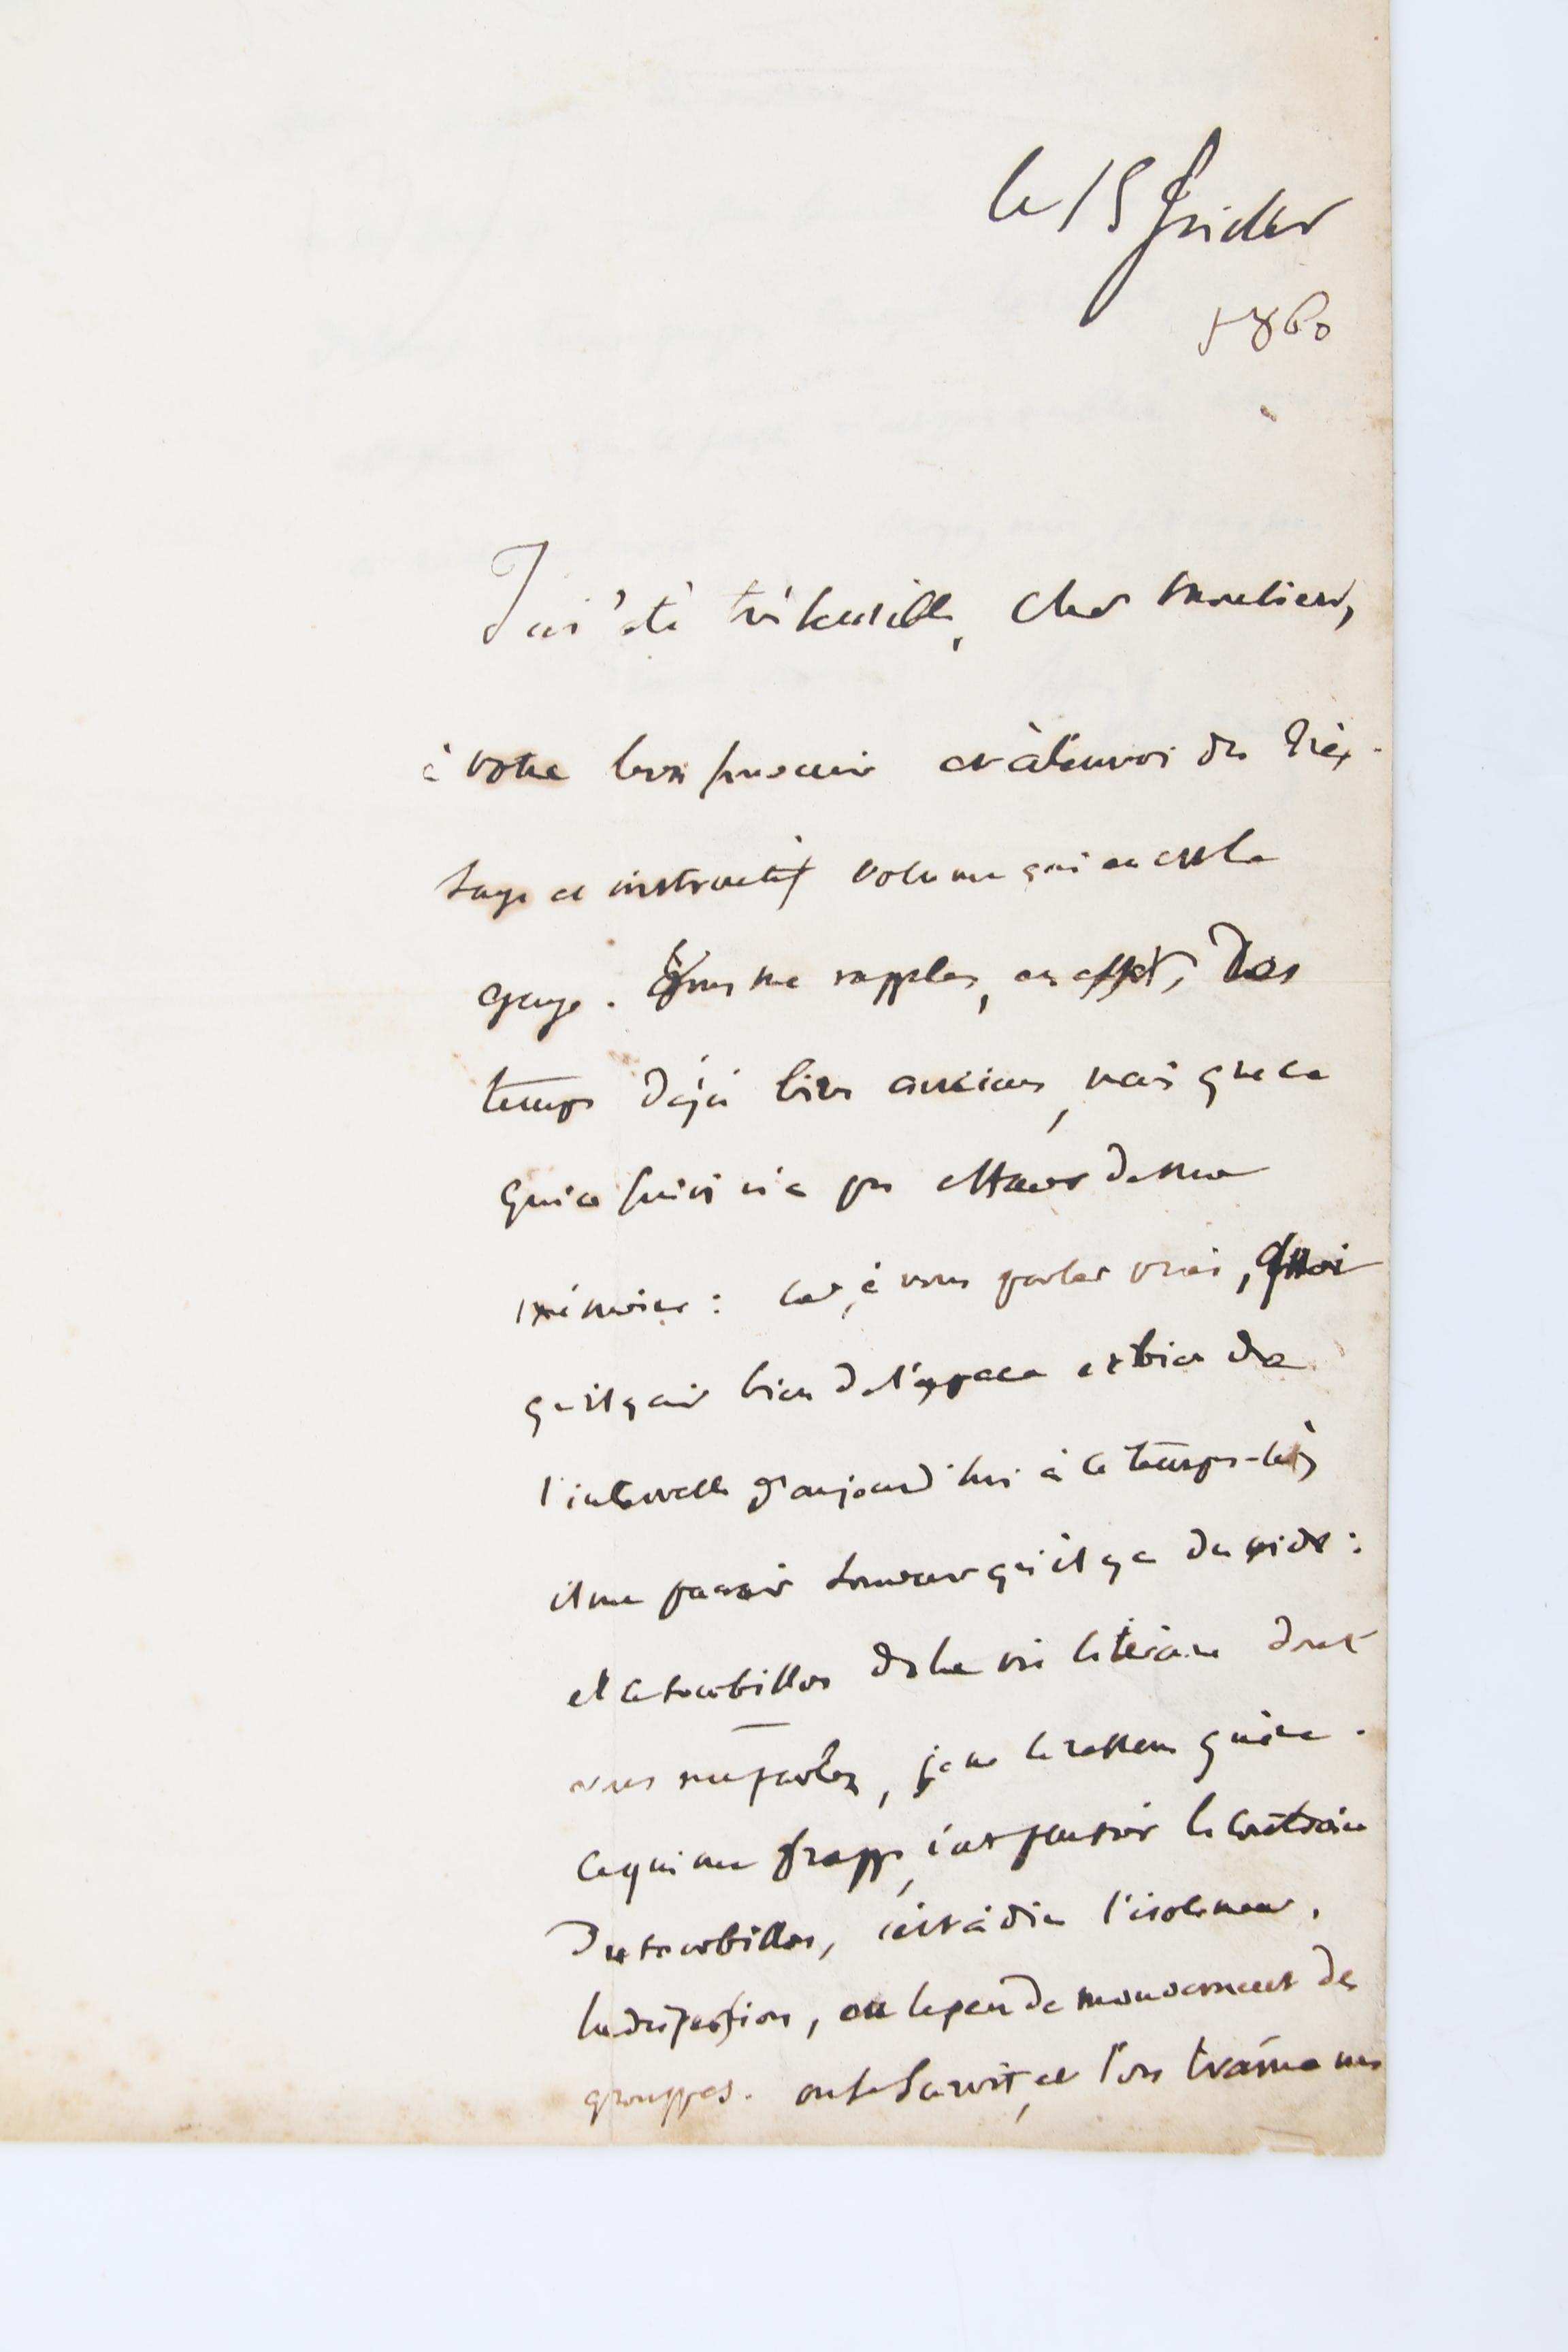 le 15 février
1860
J'ai été très sensible, cher Monsieur,
à votre bon souvenir et à l'envoi du très
sage et instructif volume qui en est le
gage. Vous me rappelez, en effet, des
temps déjà bien anciens, mais que ce
qui a suivi n'a pu effacer de ma
mémoire : car, à vous parler vrai, quoi
qu'il y ait bien de l'espace et bien de
l'intervalle d'aujourd'hui à ce temps-là,
il me paraît souvent qu'il y a du vide :
et le tourbillon de la vie littéraire dont
vous me parlez, je ne le ressens guère.
Ce qui me frappe, c'est plutôt le contraire
du tourbillon, c'est à dire l'isolement,
la dispersion, ou le peu de mouvement des
grouppes. on se survit, et l'on traîne un